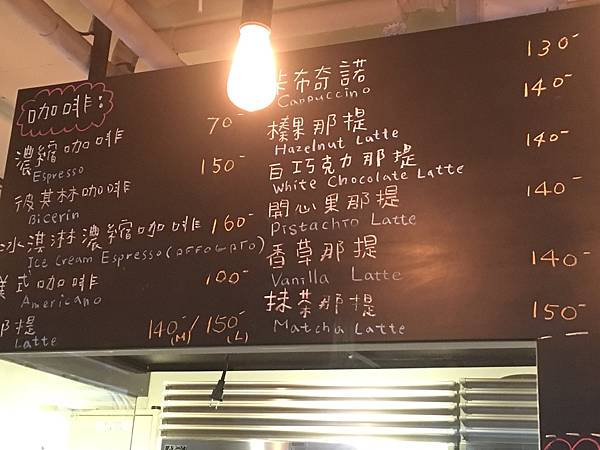 咖啡:
濃縮咖啡 70-
Espresso
彼其林咖啡 150-
Bicerin
冰淇淋濃縮咖啡 160-
Ice Cream Espresso (AFFOGATO)
美式咖啡 100-
Americano
那提 140-/150-
Latte (M) (L)
卡布奇諾 130-
Cappuccino
榛果那提 140-
Hazelnut Latte
白巧克力那提 140-
White Chocolate Latte
開心果那提 140-
Pistachio Latte
香草那提 140-
Vanilla Latte
抹茶那提 150-
Matcha Latte